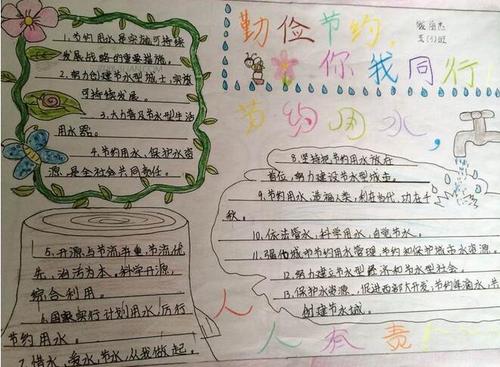 勤俭节约，
你我同行！
节约用水，
1.节约用水是实施可持续
发展战略的重要措施。
2.努力创建节水型城市，实现
可持续发展。
3.大力普及节水型生活
用水器。
4.节约用水、保护水资
源，是全社会共同责任。
5.开源与节流并重，节流优
先、治污为本、科学开源、
综合利用。
6.国家实行计划用水，厉行
节约用水。
7.惜水、爱水、节水，从我做起。
8.坚持把节约用水放在
首位，努力建设节水型城市。
9.节约用水，造福人类，利在当代，功在千
秋。
10.依法管水，科学用水，自觉节水。
11.强化城市节约用水管理，节约和保护城市水资源。
12.努力建立节水型经济和节水型社会。
13.保护水资源，促进西部大开发；节约每滴水，共
创建节水城。
人人有责！